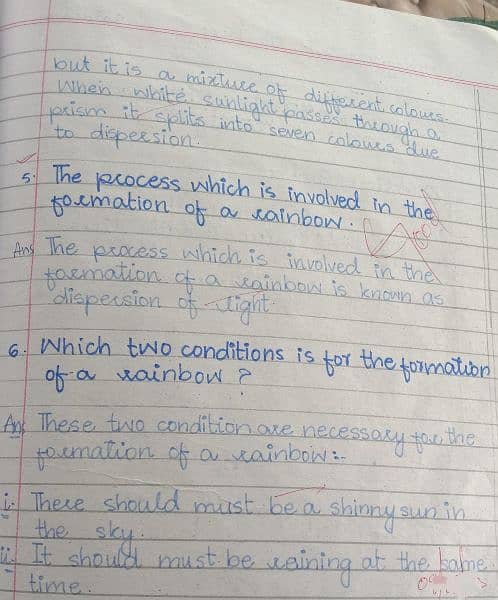 but it is a mixture of different colours.
When white sunlight passes through a
prism it splits into seven colours due
to dispersion.
5. The process which is involved in the
formation of a rainbow.
Ans The process which is involved in the
formation of a rainbow is known as
dispersion of light.
6. Which two conditions is for the formation
of a rainbow ?
Ans These two condition are necessary for the
formation of a rainbow:-
i. There should must be a shinny sun in
the sky.
ii. It should must be raining at the same
time.